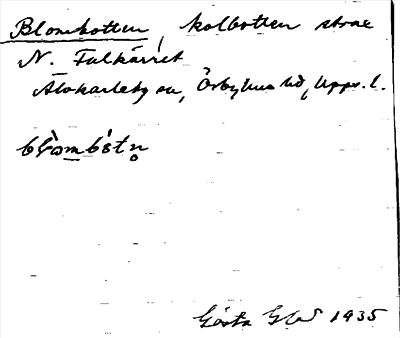 Blombotten, kolbotten strax
N. Falkärret
Älvkarleby sn, Örbyhus hd, Upps. l.
blòmbót
Gösta 1935